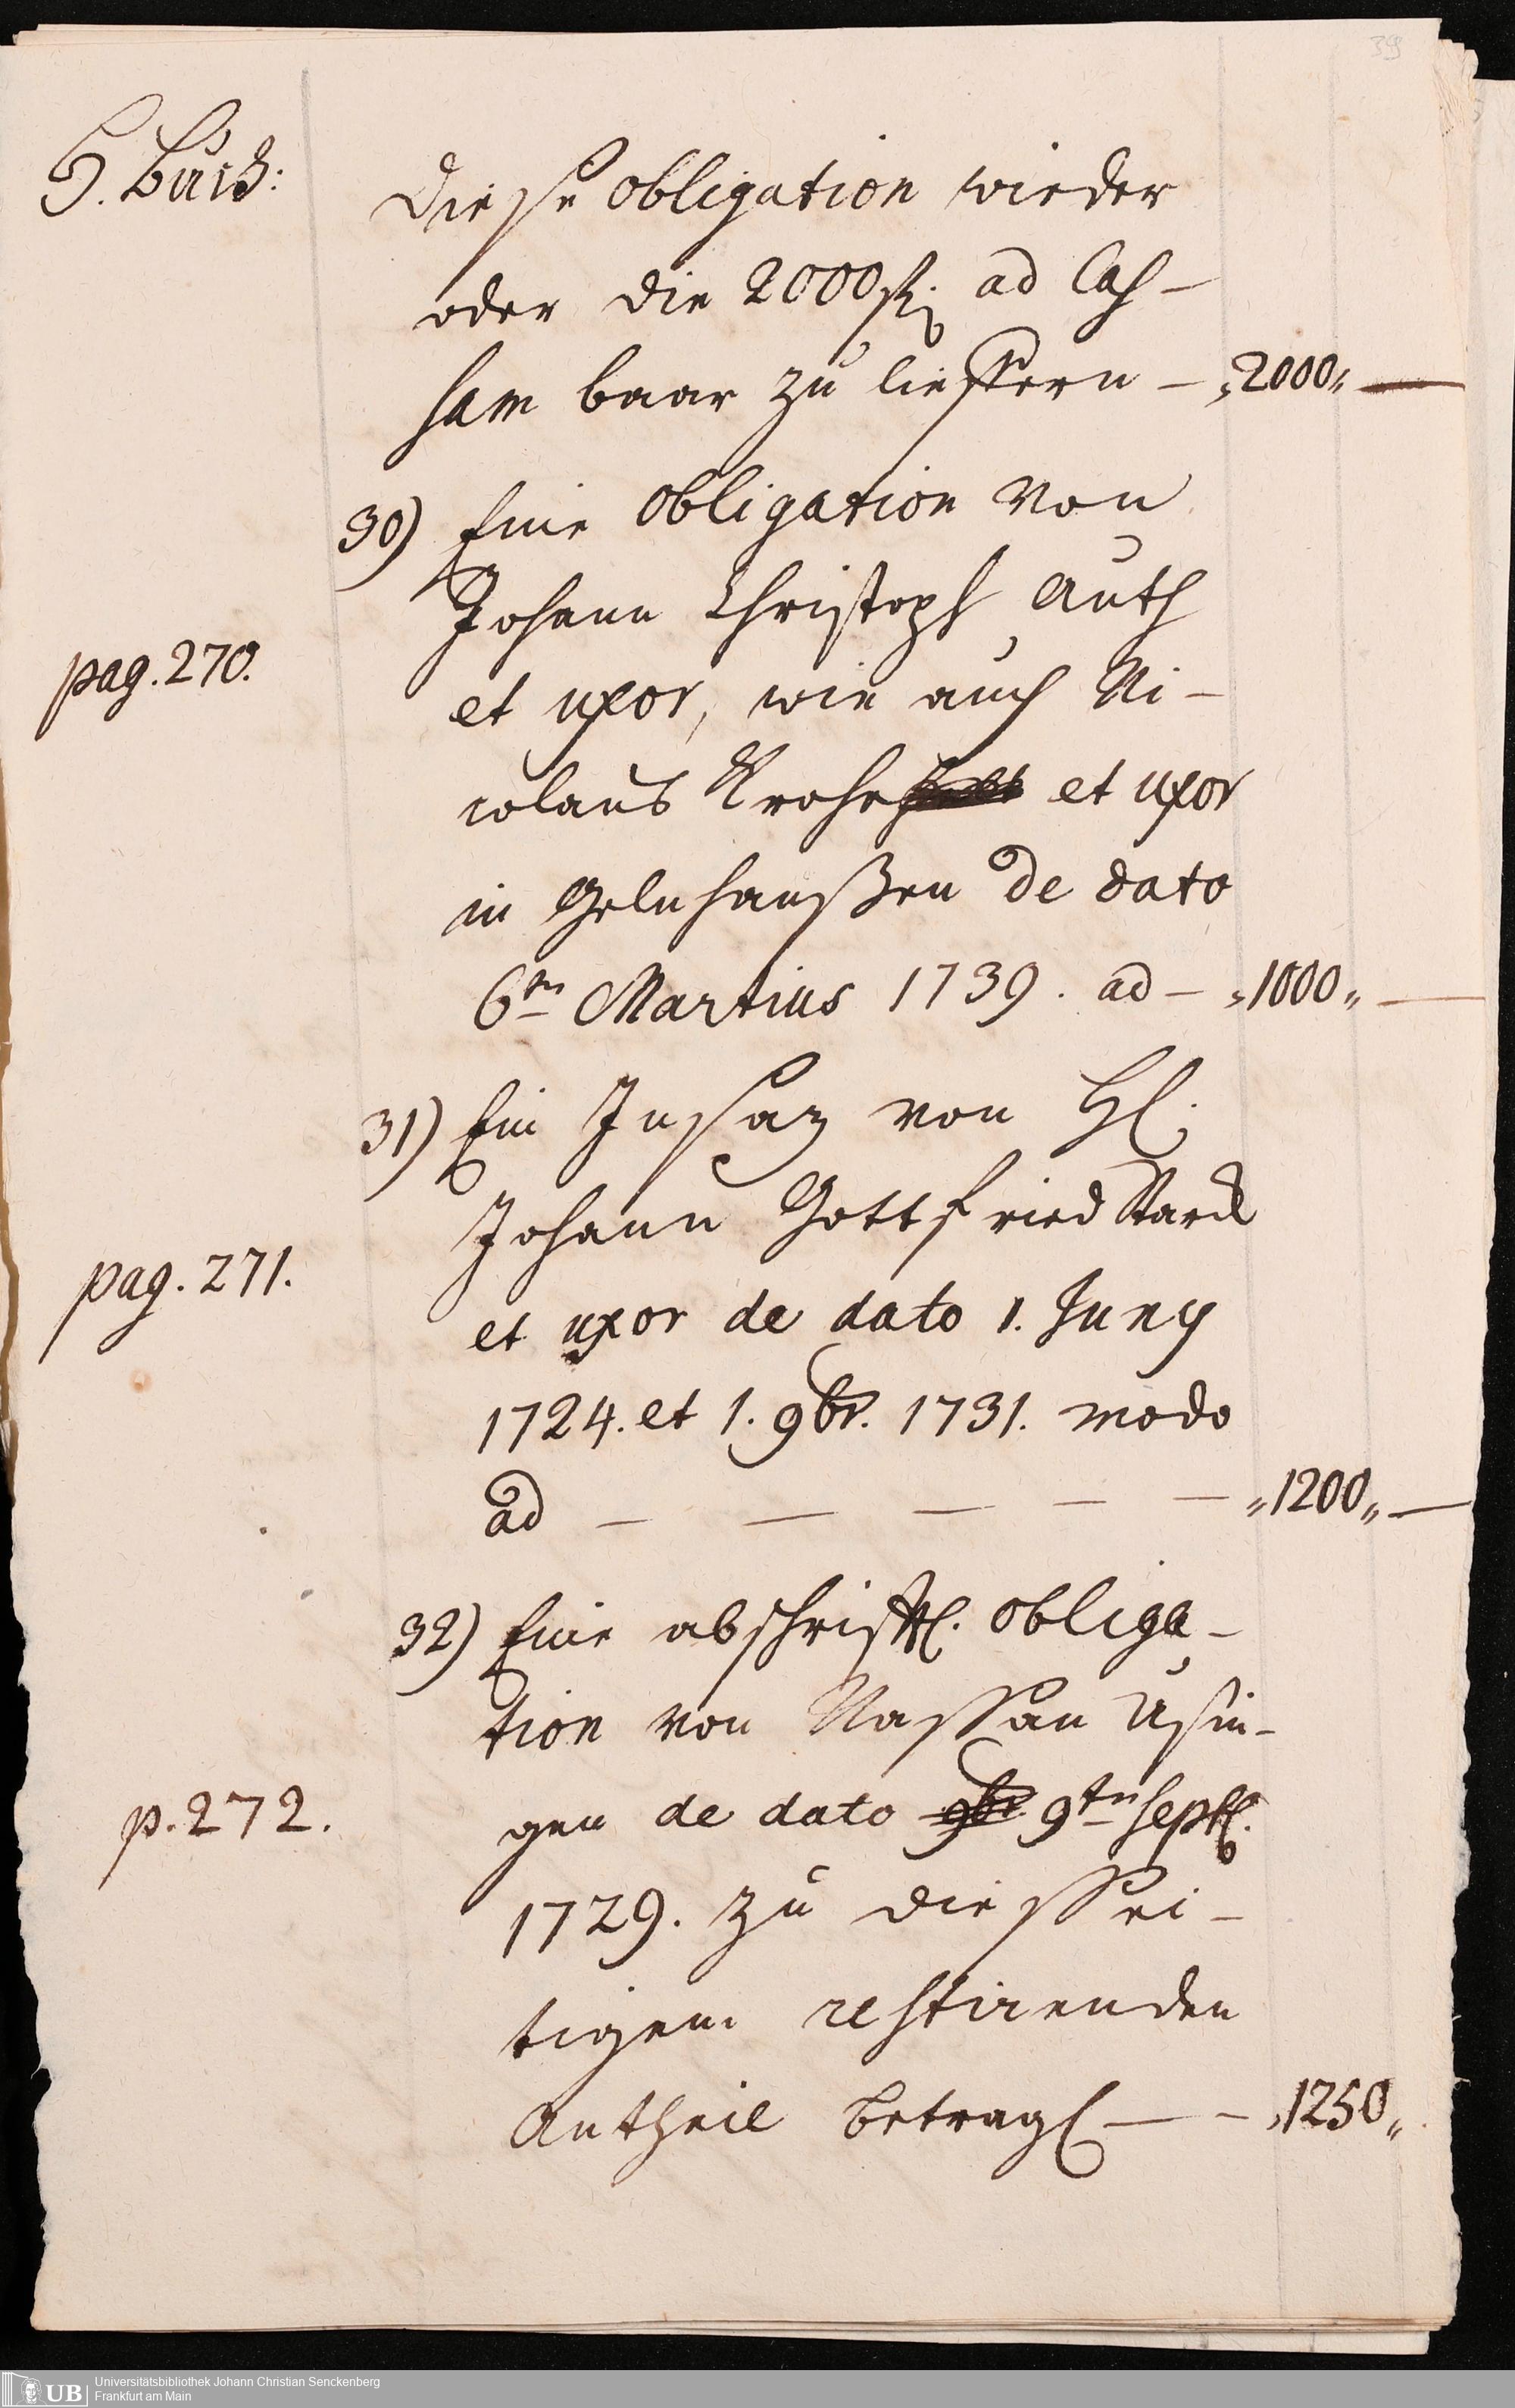 39
H. Buch:
diese obligation wieder
oder die 2000 fl. ad Cas-
sam baar zu lieffern — „2000„ —
30) Eine obligation von
Johann Christoph Auth
pag. 270.
et uxor, wie auch Ni-
colaus Krohe et uxor
in Gelnhaußen de dato
6tn Martius 1739. ad — „1000„ —
31) Ein Insaz von H.
Johann Gottfried Starck
pag. 271.
et uxor de dato 1. Juny
1724. et 1. 9br. 1731. modo
ad — — — — — „1200„ —
32) Eine abschriftl. obliga-
tion von Nassau Usin-
p. 272.
gen de dato 9br 9tn Sept.
1729. zu diessei-
tigem restirenden
Antheil betragl — — „1250„
Universitätsbibliothek Johann Christian Senckenberg
Frankfurt am Main
UB